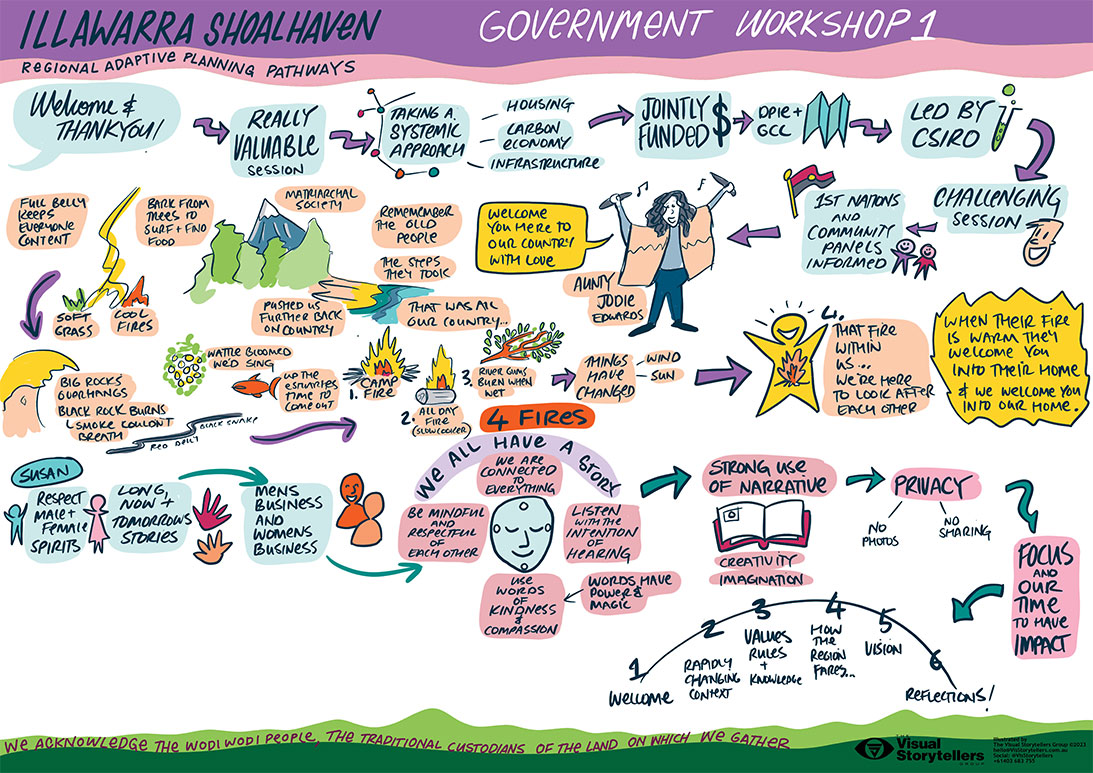 ILLAWARRA SHOALHAVEN
GOVERNMENT WORKSHOP 1
REGIONAL ADAPTIVE PLANNING PATHWAYS
Welcome &
THANKYOU!
REALLY
VALUABLE
SESSION
TAKING A
SYSTEMIC
APPROACH
HOUSING
CARBON
ECONOMY
INFRASTRUCTURE
JOINTLY
FUNDED
$
DPIE +
GCC
LED BY
CSIRO
CHALLENGING
SESSION
1ST NATIONS
AND
COMMUNITY
PANELS
INFORMED
WELCOME
YOU HERE TO
OUR COUNTRY
WITH LOVE
AUNTY
JODIE
EDWARDS
FULL BELLY
KEEPS
EVERYONE
CONTENT
BARK FROM
TREES TO
SURF + FIND
FOOD
MATRIARCHAL
SOCIETY
REMEMBER
THE OLD
PEOPLE
THE STEPS
THEY TOOK
SOFT
GRASS
COOL
FIRES
PUSHED US
FURTHER BACK
ON COUNTRY
THAT WAS ALL
OUR COUNTRY...
BIG ROCKS
OVERHANGS
BLACK ROCK BURNS
SMOKE COULDN'T
BREATH
WATTLE BLOOMED
WE'D SING
UP THE
ESTUARIES
TIME TO
COME OUT
RED BELLY
BLACK SNAKE
CAMP
1. FIRE
2. ALL DAY
FIRE
(SLOWCOOKER)
3. RIVER GUMS
BURN WHEN
WET
4 FIRES
THINGS
HAVE
CHANGED
WIND
SUN
4.
THAT FIRE
WITHIN
US...
WE'RE HERE
TO LOOK AFTER
EACH OTHER
WHEN THEIR FIRE
IS WARM THEY
WELCOME YOU
INTO THEIR HOME
& WE WELCOME YOU
INTO OUR HOME.
SUSAN
RESPECT
MALE +
FEMALE
SPIRITS
LONG,
NOW +
TOMORROWS
STORIES
MENS
BUSINESS
AND
WOMENS
BUSINESS
WE ALL HAVE A STORY
WE ARE
CONNECTED
TO
EVERYTHING
BE MINDFUL
AND
RESPECTFUL
OF
EACH OTHER
LISTEN
WITH THE
INTENTION
OF
HEARING
USE
WORDS
OF
KINDNESS
&
COMPASSION
WORDS HAVE
POWER &
MAGIC
STRONG USE
OF NARRATIVE
CREATIVITY
IMAGINATION
PRIVACY
NO
PHOTOS
NO
SHARING
FOCUS
AND
OUR
TIME
TO HAVE
IMPACT
1
WELCOME
2
RAPIDLY
CHANGING
CONTEXT
3
VALUES
RULES
+
KNOWLEDGE
4
HOW
THE
REGION
FARES...
5
VISION
6
REFLECTIONS!
WE ACKNOWLEDGE THE WODI WODI PEOPLE, THE TRADITIONAL CUSTODIANS OF THE LAND ON WHICH WE GATHER
THE
Visual
Storytellers
GROUP
Illustrated by
The Visual Storytellers Group ©2023
hello@VisStorytellers.com.au
Social: @VisStorytellers
+61403 683 755